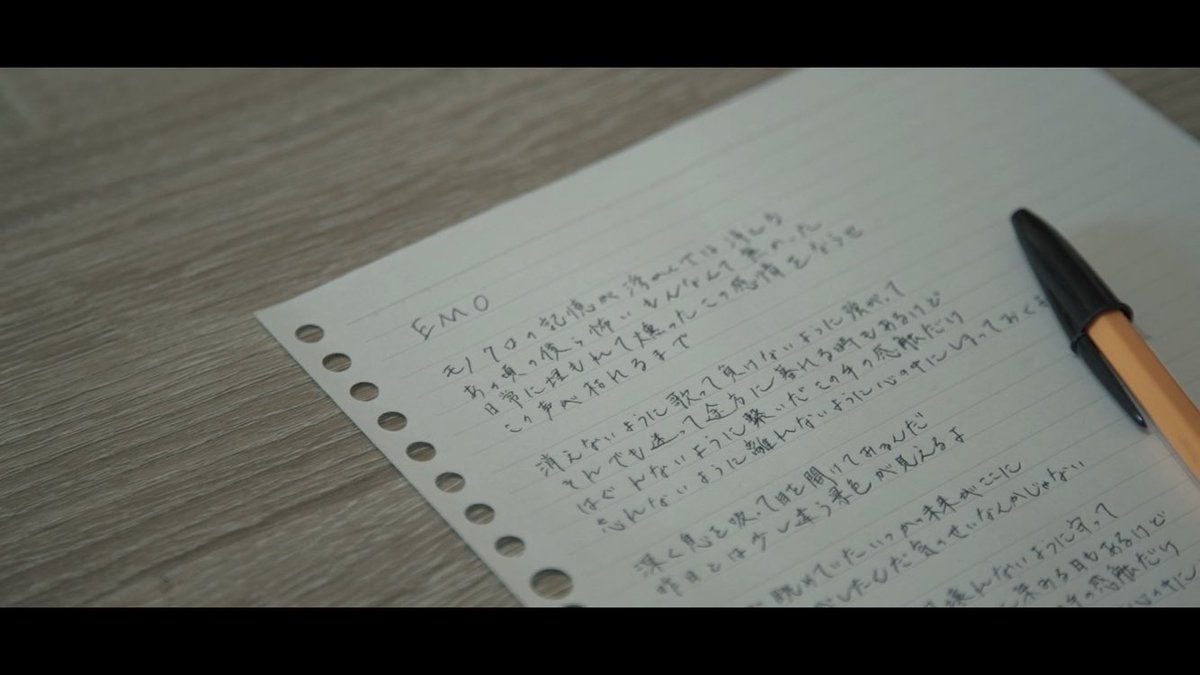 EMO
モノクロの記憶が浮かんでは消える
あの頃の僕ら怖いもんなんて無かった
日常に埋もれて燻ったこの感情を鳴らせ
この声が枯れるまで
消えないように歌って負けないように強がって
そんでも迷って途方に暮れる時もあるけど
はぐんないように繋いだこの手の感触だけ
忘んないように離んないように心の中にしまっておくよ
深く息を吸って目を開けてみるんだ
昨日とは少し違う景色が見えるよ
眺めていたいつかの未来がここに
がしたんだ気のせいなんかじゃない
壊んないように守って
る日もあるけど
の感触だけ
心の中に